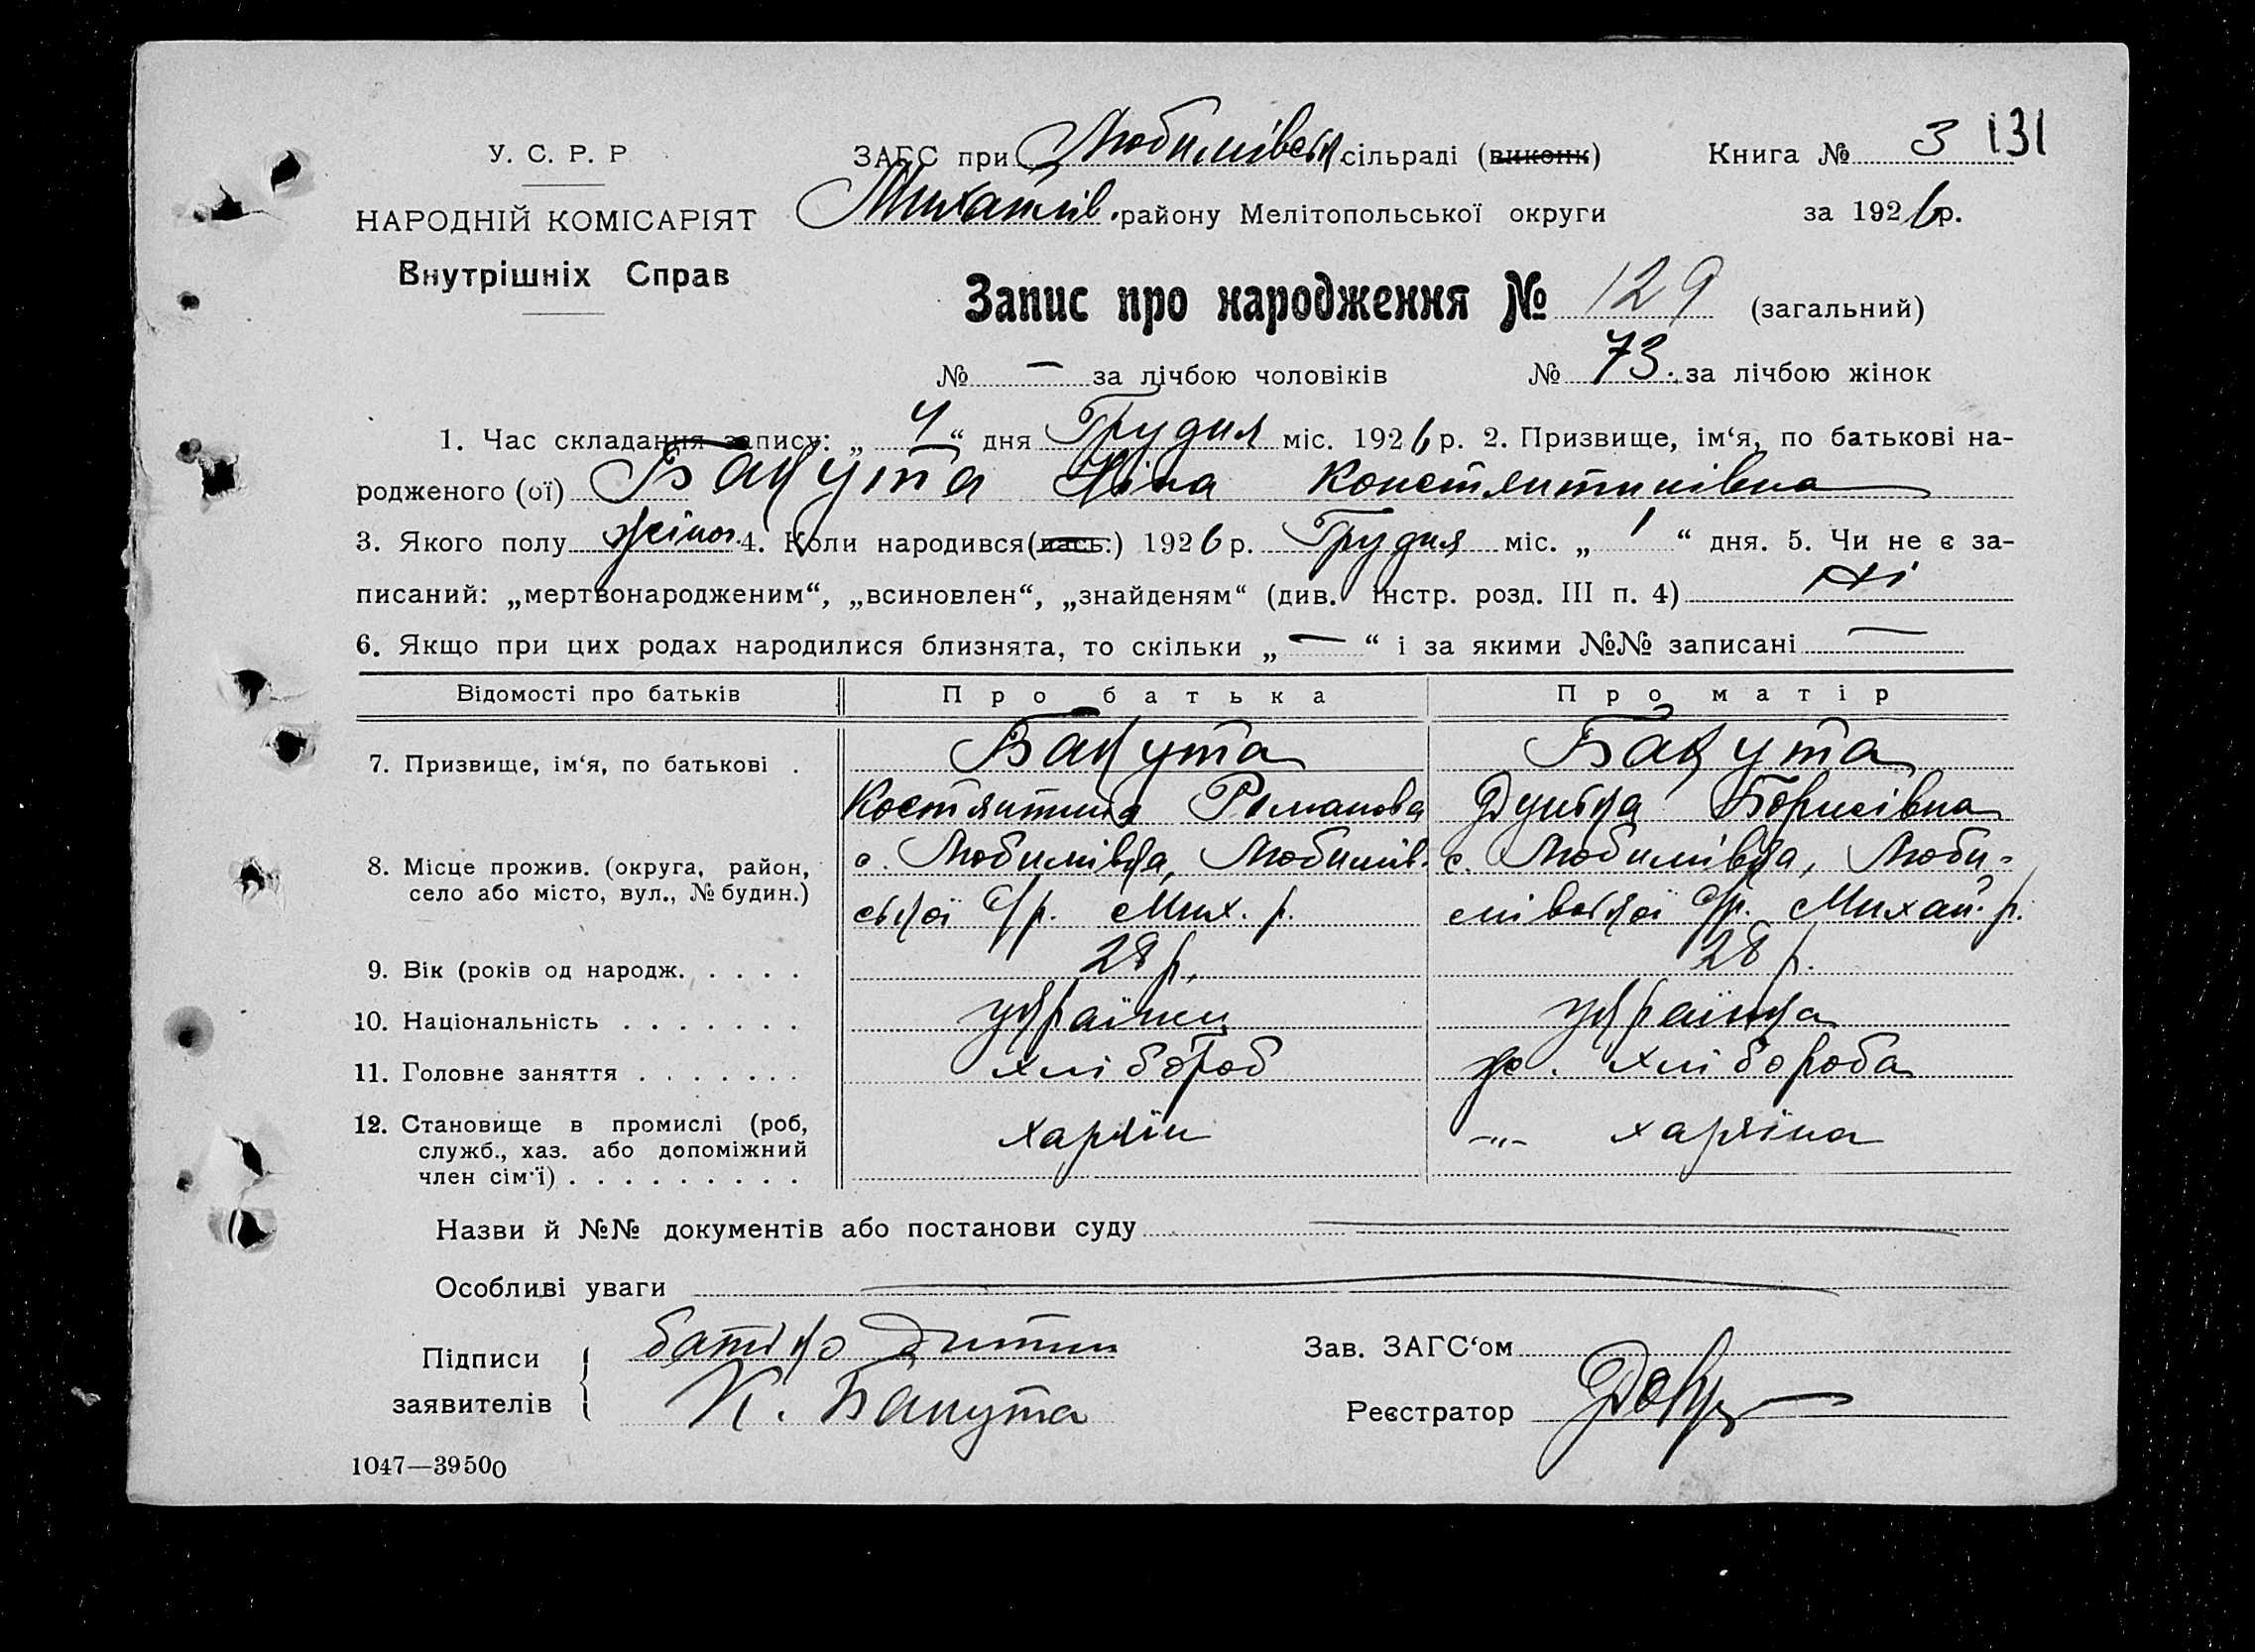 У. С. Р. Р
НАРОДНІЙ КОМІСАРІЯТ
Внутрішніх Справ
ЗАГС при Любимівськ сільраді (виконк) Книга № 3 131
Михайлів. району Мелітопольської округи за 1926 р.
Запис про народження № 129 (загальний)
№ — за лічбою чоловіків № 73. за лічбою жінок
1. Час складання запису: „ 4 “ дня Грудня міс. 1926 р. 2. Призвище, ім‘я, по батькові на-
родженого (ої) Бакута Ніна Констянтинівна
3. Якого полу жіноч. 4. Коли народився (лась.) 1926 р. Грудня міс. „ 1 “ дня. 5. Чи не є за-
писаний: „мертвонародженим“, „всиновлен“, „знайденям“ (див. інстр. розд. III п. 4) Ні
6. Якщо при цих родах народилися близнята, то скільки „ — “ і за якими №№ записані —
Відомості про батьків Про батька Про матір
7. Призвище, ім‘я, по батькові . Бакута Бакута
Романова Борисівна
8. Місце прожив. (округа, район, с. Любимівка, Любимів- с. Любимівка, Люби-
село або місто, вул., № будин.) ської с/р. Мих. р. мівської с/р. Михай. р.
9. Вік (років од народж. . . . . 28 р. 28 р.
10. Національність . . . . . . . українц українка
11. Головне заняття . . . . . . . хлібороб хлібороба
12. Становище в промислі (роб, -"-
служб., хаз. або допоміжний
член сім‘ї) . . . . . . . . .
Назви й №№ документів або постанови суду
Особливі уваги
Підписи батько дитини Зав. ЗАГС‘ом
заявителів К. Бакута Реєстратор
1047—39500